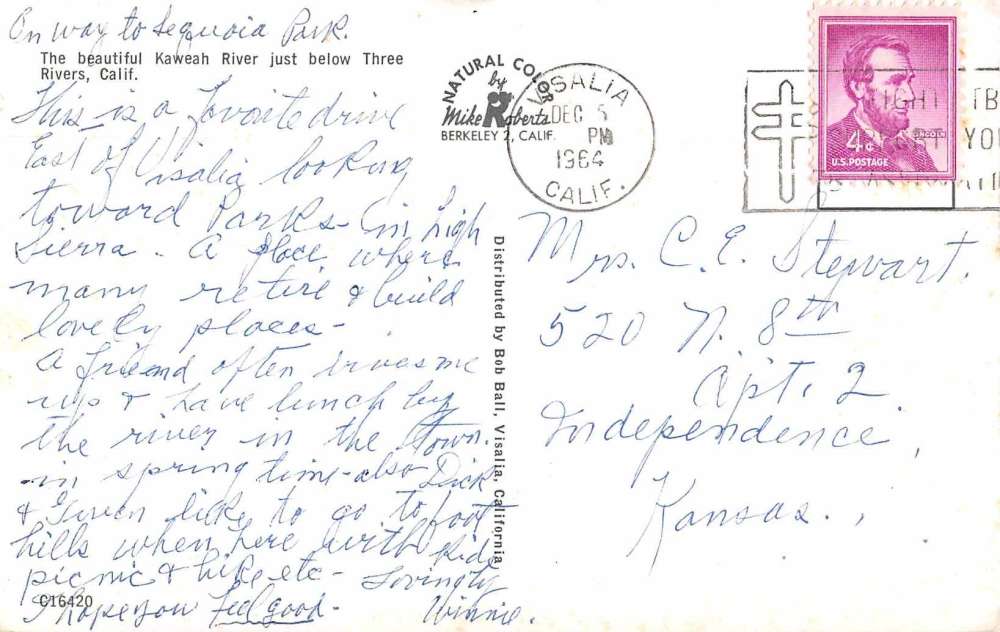 On way to Sequoia Park.
The beautiful Kaweah River just below Three
Rivers, Calif.
This is a favorite drive
East of Visalia looking
toward Parks - in high
Sierra. A place where
many retire & build
lovely places -
A friend often drives me
up & have lunch by
the river in the town.
in spring time - also Dick
& Gwen like to go to foot
hills when here with kids
picnic & hike etc - Lovingly
I hope you feel good - Winnie.
C16420
NATURAL COLOR
by
Mike Roberts
BERKELEY 2, CALIF.
Distributed by Bob Ball, Visalia, California
VISALIA
DEC 5
PM
1964
CALIF.
4¢
LINCOLN
U.S. POSTAGE
FIGHT TB
YOU
Mrs. C. E. Stewart.
520 N. 8th
Apt. 2
Independence,
Kansas.,